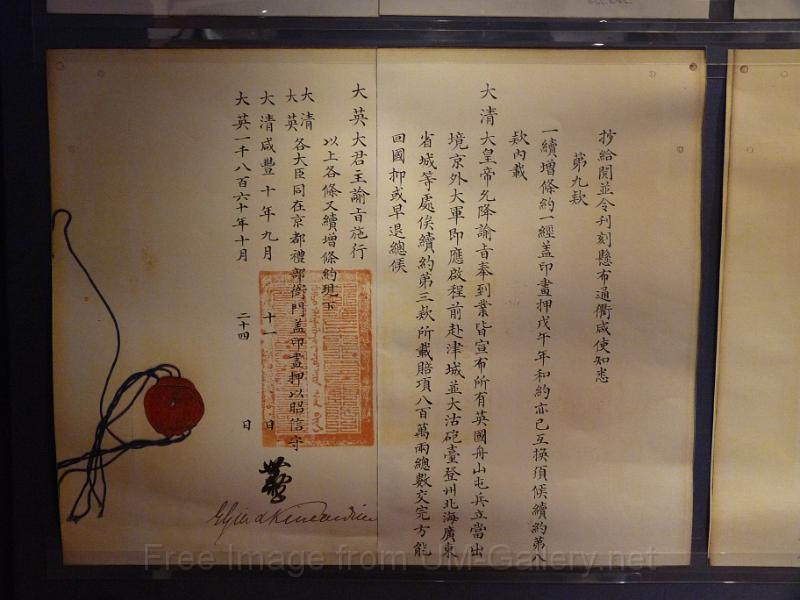 抄給閱並令刊刻懸布通衢咸使知悉
第九款
一續增條約一經蓋印畫押戊午年和約亦已互換須俟續約第八
款內載
大清大皇帝允降諭旨奉到業皆宣布所有英國舟山屯兵立當出
境京外大軍即應啟程前赴津城並大沽砲臺登州北海廣東
省城等處俟續約第三款所載賠項八百萬兩總數交完方能
回國抑或早退總候
大英大君主諭旨施行
以上各條又續增條約現下
大清
大英各大臣同在京都禮部衙門蓋印畫押以昭信守
大清咸豐十年九月十一日
大英一千八百六十年十月二十四日
Elgin & Kincardine
Free Image from UM-Gallery.net